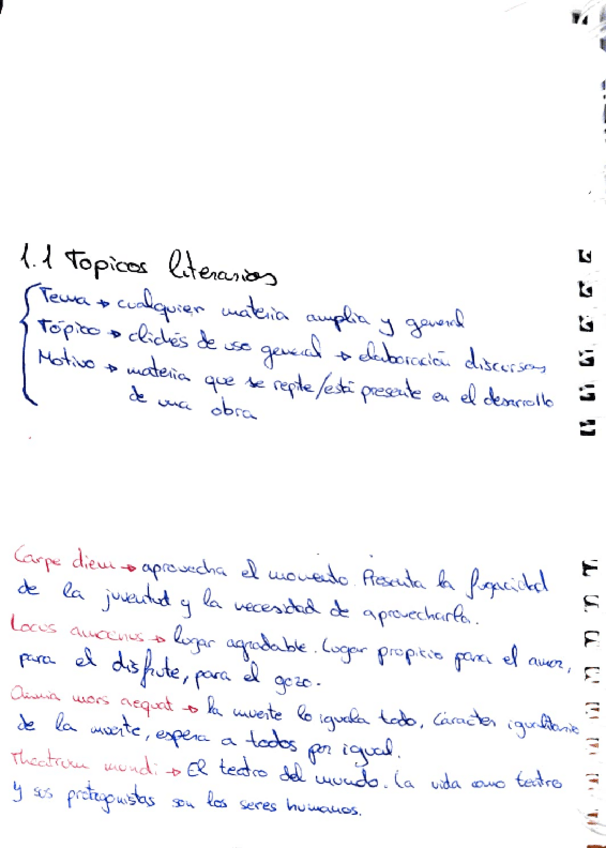 1.1 Topicos literarios
Tema → cualquier materia amplia y general
Tópico → clichés de uso general → elaboración discursos
Motivo → materia que se repite/está presente en el desarrollo
de una obra
Carpe diem → aprovecha el momento. Presenta la fugacidad
de la juventud y la necesidad de aprovecharla.
Locus amoenus → lugar agradable. Lugar propicio para el amor,
para el disfrute, para el gozo.
Omnia mors aequat → la muerte lo iguala todo, Carácter igualitario
de la muerte, espera a todos por igual.
Theatrum mundi → El teatro del mundo. La vida como teatro
y sus protagonistas son los seres humanos.